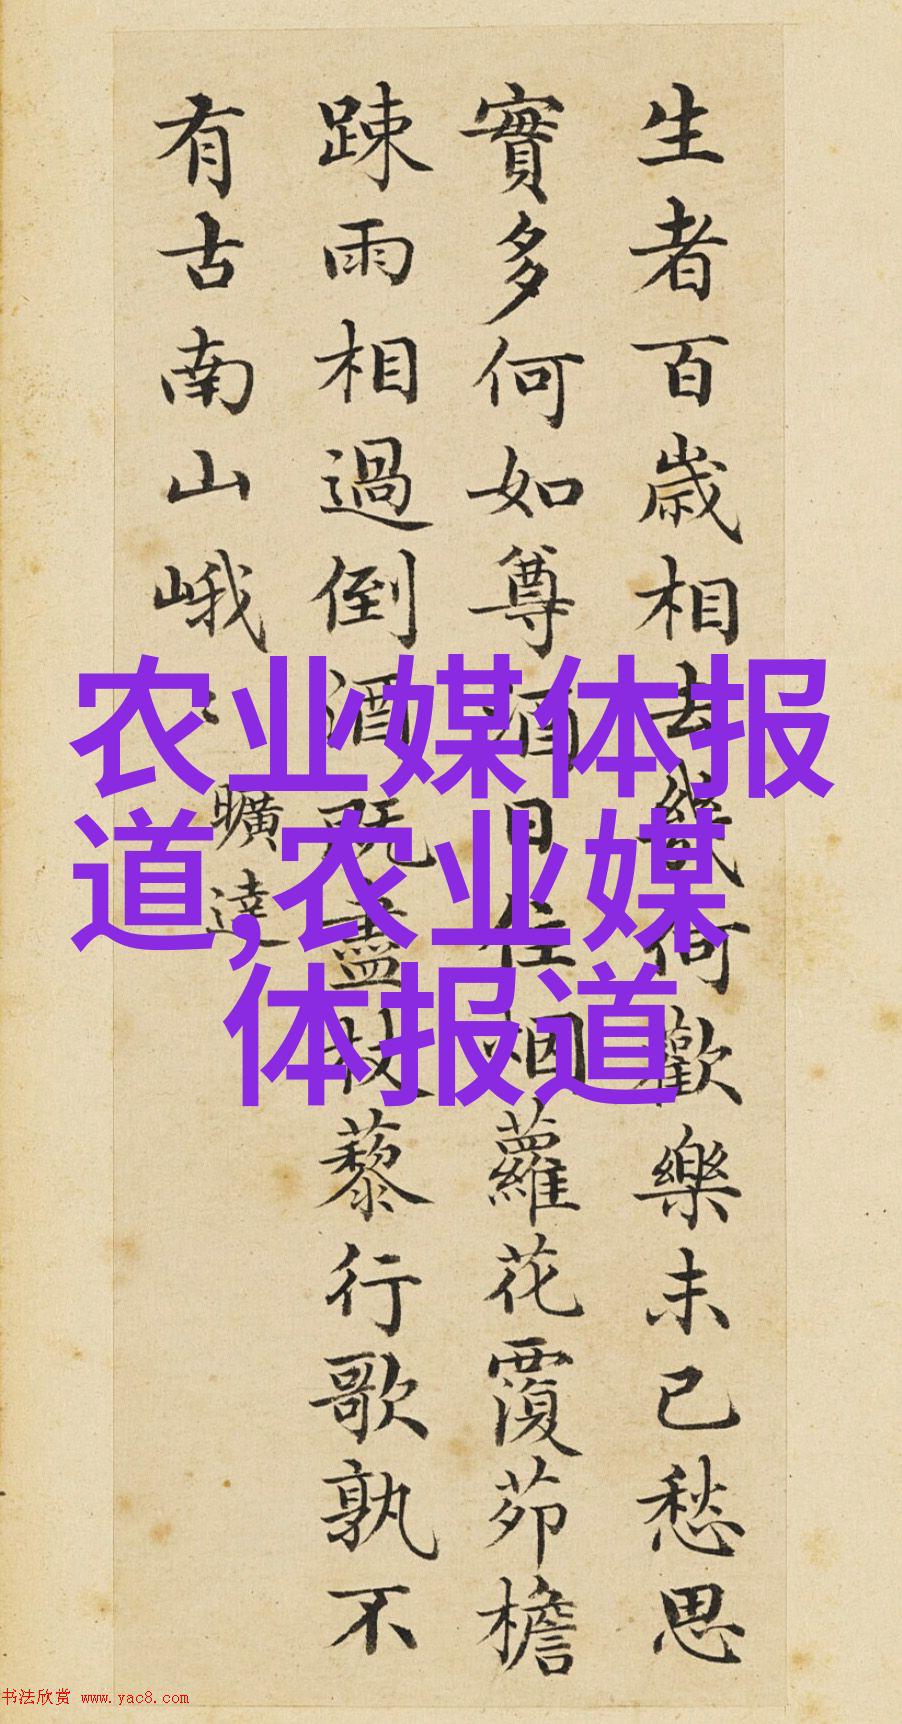 生者百歲相去幾何歡樂未已愁思
實多何如尊酒日往烟蘿花覆茆檐
踈雨相過倒酒既盡杖藜行歌孰不
有古南山峨〻
曠達
农业媒体报
道,农业媒
体报道
书法欣赏 www.yac8.com